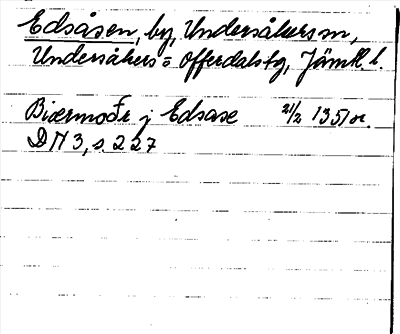 Edsåsen, by, Undersåkers sn,
Undersåkers o Offerdals tg, Jämtl. l.
Biærmoðr j Edsase 2/2 1351 or.
DN 3, s. 227